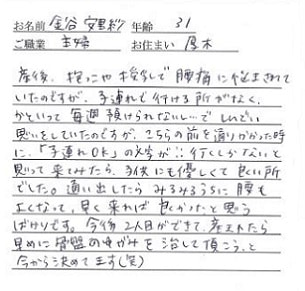 お名前 金谷 安里紗 年齢 31
ご職業 主婦 お住まい 厚木
産後、抱っこや授乳で腰痛に悩まされて
いたのですが、子連れで行ける所がなく、
かといって毎週預けられないし…でしんどい
思いをしていたのですが、こちらの前を通りかかった時
に、「子連れOK」の文字が!!行くしかないと
思って来てみたら、子供にも優しくて良い所
でした。通い出したらみるみるうちに腰も
よくなって、早く来れば良かったと思う
ばかりです。今後2人目ができて、産まれたら
早めに骨盤のゆがみを治して頂こう、と
今から決めてます(笑)